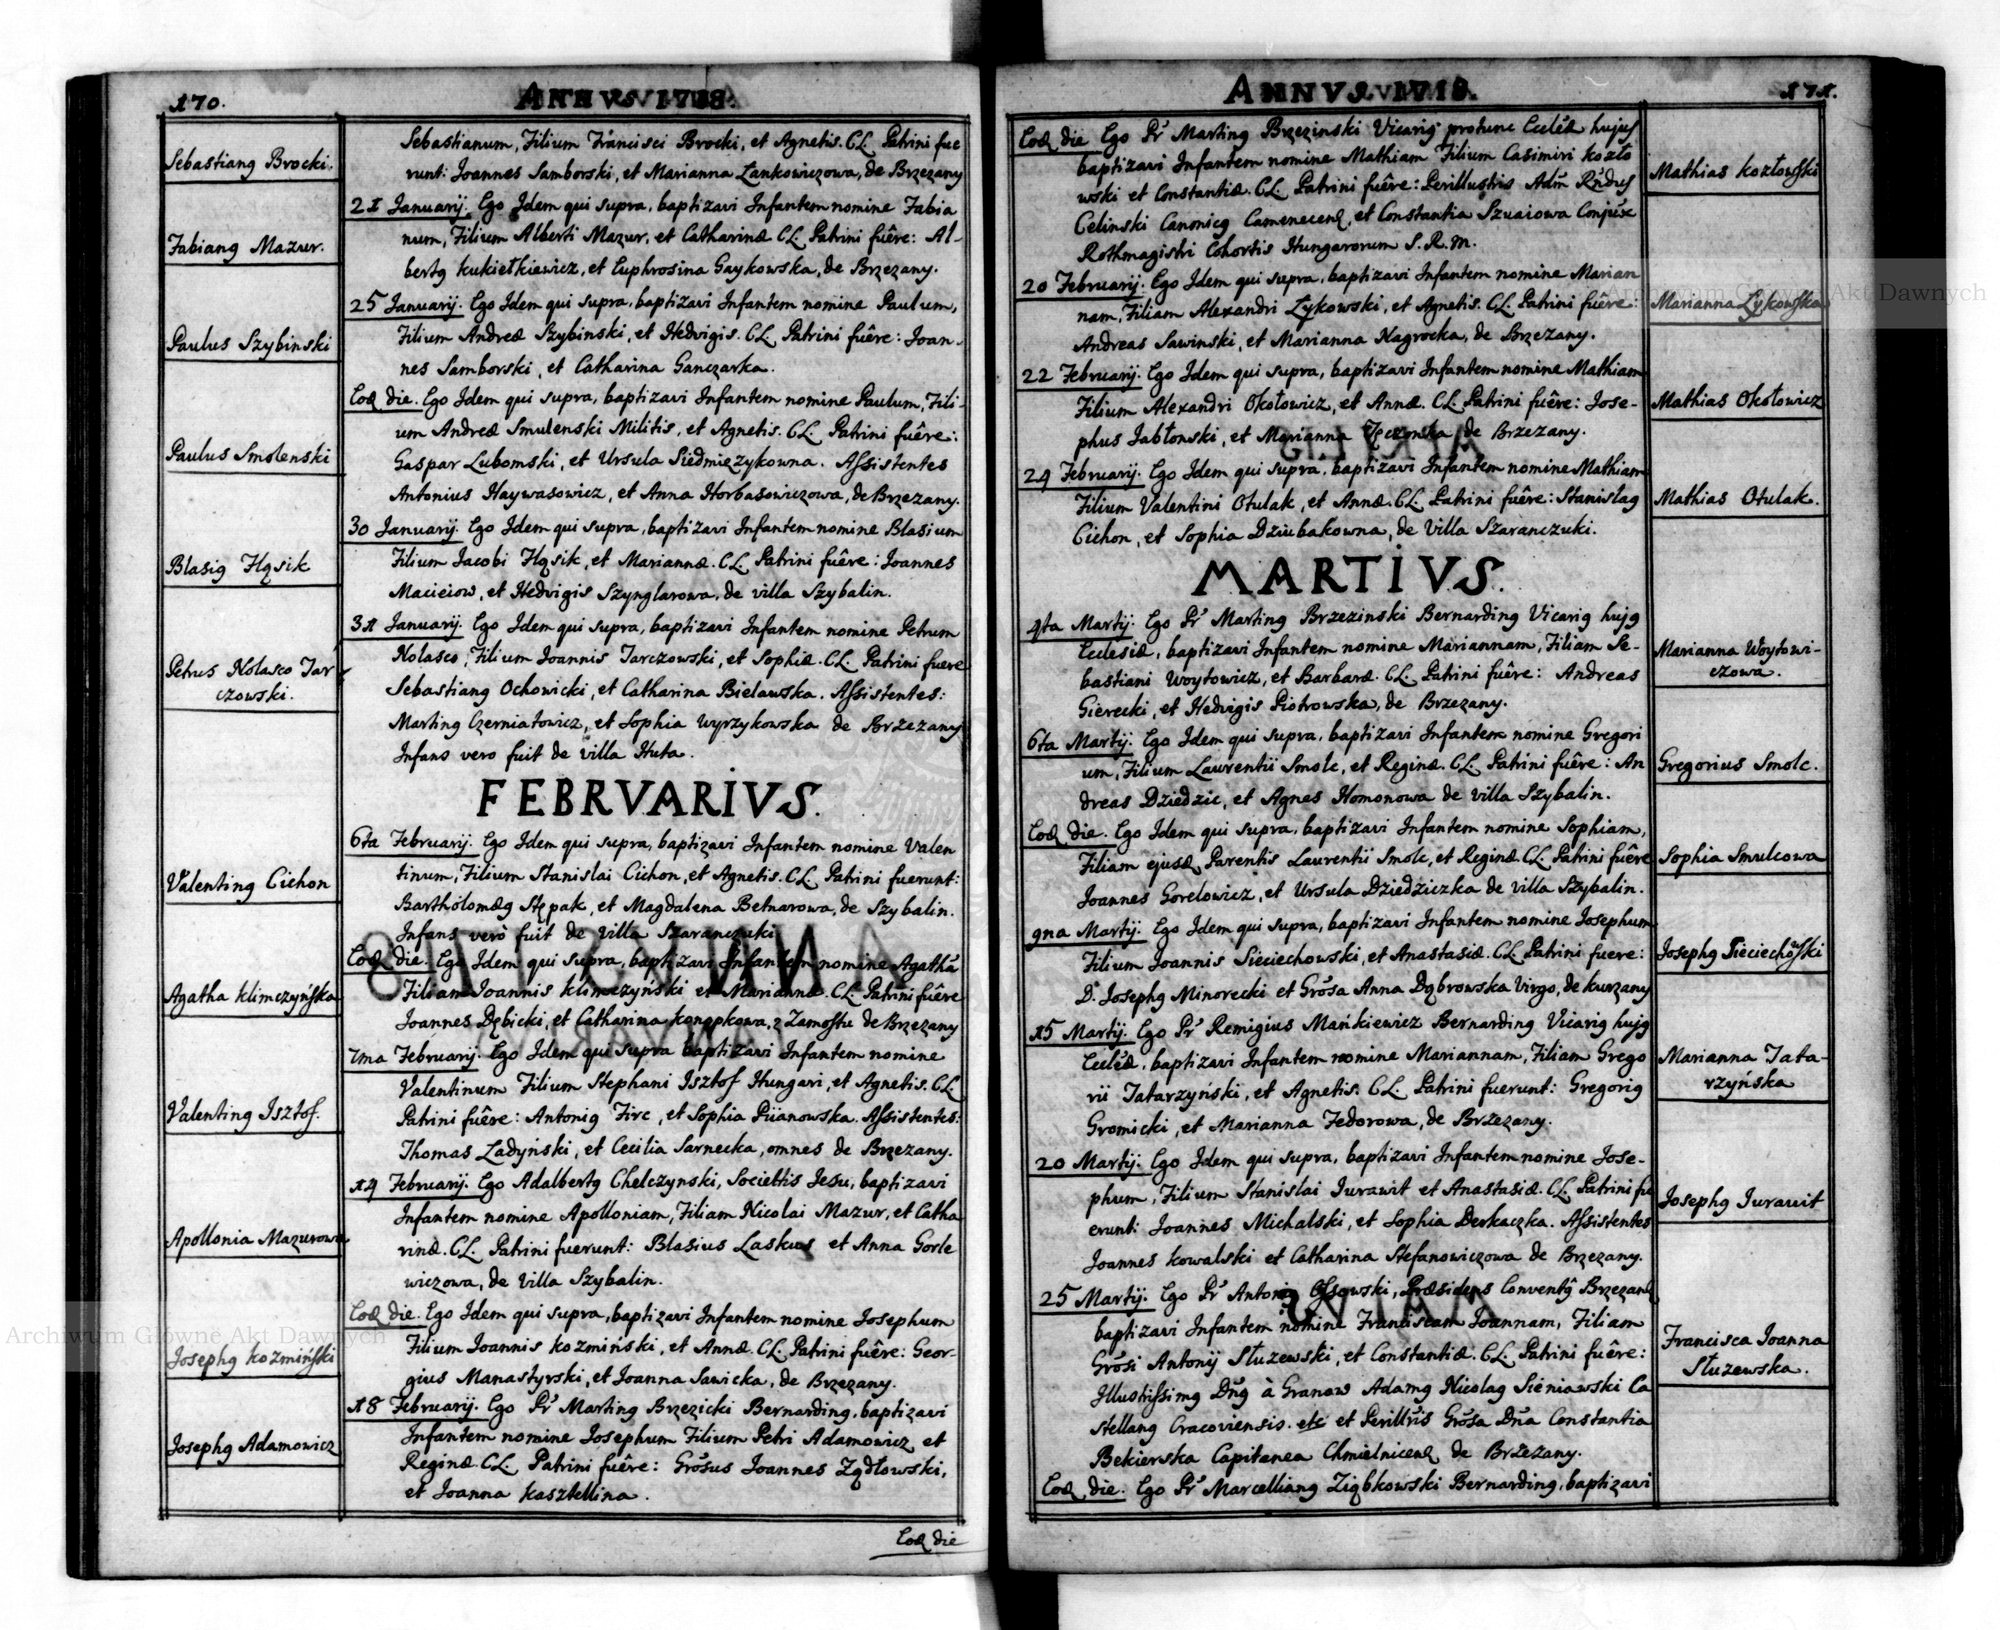 170.
ANNVS 1718.
Sebastiang Brocki.
Sebastianum, Filium Francisci Brocki, et Agnetis. CL. Patrini fue
runt: Joannes Samborski, et Marianna Łankowiczowa, de Brzezany
Fabiang Mazur.
21 Januarij. Ego Idem qui supra, baptizavi Infantem nomine Fabia
num, Filium Alberti Mazur, et Catharinæ CL. Patrini fuêre: Al-
bertg Kukiełkiewicz, et Euphrosina Gaykowska, de Brzezany.
Paulus Szybinski
25 Januarij. Ego Idem qui supra, baptizavi Infantem nomine Paulum,
Filium Andreæ Szybinski, et Hedvigis. CL. Patrini fuêre: Joan-
nes Samborski, et Catharina Ganczarka.
Paulus Smolenski
Eod die. Ego Idem qui supra, baptizavi Infantem nomine Paulum, Fili-
um Andreæ Smulenski Militis, et Agnetis. CL. Patrini fuêre:
Gaspar Lubomski, et Ursula Siedmięzykowna. Assistentes
Antonius Haywasowicz, et Anna Horbasowiczowa, de Brzezany.
Blasig Hąsik
30 Januarij. Ego Idem qui supra, baptizavi Infantem nomine Blasium
Filium Jacobi Hąsik, et Mariannæ. CL. Patrini fuêre: Joannes
Macieiow, et Hedvigis Szynglarowa, de villa Szybalin.
Petrus Nolasco Tar
czowski.
31 Januarij. Ego Idem qui supra, baptizavi Infantem nomine Petrum
Nolasco, Filium Joannis Tarczowski, et Sophiæ. CL. Patrini fuere
Sebastiang Ochowicki, et Catharina Bielawska. Assistentes:
Marting Czerniatowicz, et Sophia Wyrzykowska de Brzezany
Infans vero fuit de villa Huta.
FEBRVARIVS.
Valenting Cichon
6ta Februarij. Ego Idem qui supra, baptizavi Infantem nomine Valen
tinum, Filium Stanislai Cichon, et Agnetis. CL. Patrini fuerunt:
Bartholomæg Stępak, et Magdalena Betnarowa, de Szybalin.
Infans verò fuit de villa Szaranczuki
Agatha Klimczyńska
Eod die. Ego Idem qui supra, baptizavi Infantem nomine Agathã
Filiam Joannis Klimczyński et Mariannæ. CL. Patrini fuêre
Joannes Dębicki, et Catharina Konopkowa, z Zamostu de Brzezany
Valenting Isztof.
7ma Februarij. Ego Idem qui supra baptizavi Infantem nomine
Valentinum Filium Stephani Isztof Hungari, et Agnetis. CL
Patrini fuêre: Antonig Firc, et Sophia Piianowska. Assistentes:
Thomas Ładyński, et Cecilia Sarnecka, omnes de Brzezany.
Apollonia Mazurowa
14 Februarij. Ego Adalbertg Chelczynski, Societtis Jesu, baptizavi
Infantem nomine Apolloniam, Filiam Nicolai Mazur, et Catha
rinæ. CL. Patrini fuerunt: Blasius Laskus et Anna Gorle
wiczowa, de villa Szybalin.
Josephg Kozmiński
Eod die. Ego Idem qui supra, baptizavi Infantem nomine Josephum
Filium Joannis Kozmiński, et Annæ. CL. Patrini fuêre: Geor-
gius Manastyrski, et Joanna Sawicka, de Brzezany.
Josephg Adamowicz
18 Februarij. Ego Pr Marting Brzezicki Bernarding, baptizavi
Infantem nomine Josephum Filium Petri Adamowicz et
Reginæ CL. Patrini fuêre: Grosus Joannes Ządłowski,
et Joanna Kasztellina.
Eod die
ANNVS 1718.
171.
Eod die Ego Pr Marting Brzezinski Vicarig protunc Eccleæ hujus
baptizavi Infantem nomine Mathiam Filium Casimiri Kozło
wski et Constantiæ. CL. Patrini fuêre: Perillustris Adm Rndus
Celinski Canonicg Camenecens, et Constantia Szuaiowa Conjux
Rothmagistri Cohortis Hungarorum S. R. M.
Mathias Kozłowski
20 Februarij. Ego Idem qui supra, baptizavi Infantem nomine Marian
nam, Filiam Alexandri Łykowski, et Agnetis. CL Patrini fuêre:
Andreas Sawinski, et Marianna Nagrocka, de Brzezany.
Marianna Łykowska
22 Februarij. Ego Idem qui supra, baptizavi Infantem nomine Mathiam
Filium Alexandri Okołowicz, et Annæ. CL. Patrini fuêre: Jose-
phus Jabłonski, et Marianna de Brzezany.
Mathias Okołowicz
24 Februarij. Ego Idem qui supra, baptizavi Infantem nomine Mathiam
Filium Valentini Otulak, et Annæ. CL. Patrini fuêre: Stanislag
Cichon, et Sophia Dziubakowna, de villa Szaranczuki.
Mathias Otulak.
MARTIVS.
4ta Martij. Ego Pr Marting Brzezinski Bernarding Vicarig hujg
Ecclesiæ, baptizavi Infantem nomine Mariannam, Filiam Se-
bastiani Woytowicz, et Barbaræ. CL. Patrini fuêre: Andreas
Gierecki, et Hedvigis Piotrowska, de Brzezany.
Marianna Woytowi-
czowa.
6ta Martij. Ego Idem qui supra, baptizavi Infantem nomine Gregori
um, Filium Laurentii Smolc, et Reginæ. CL. Patrini fuêre: An
dreas Dziedzic, et Agnes Homonowa de villa Szybalin.
Gregorius Smolc.
Eod die. Ego Idem qui supra, baptizavi Infantem nomine Sophiam,
Filiam ejusd Parentis Laurentii Smolc, et Reginæ. CL. Patrini fuêre
Joannes Gorelowicz, et Ursula Dziedziczka de villa Szybalin.
Sophia Smulcowa
9na Martij. Ego Idem qui supra, baptizavi Infantem nomine Josephum
Filium Joannis Sieciechowski, et Anastasiæ. CL. Patrini fuere:
D. Josephg Minorecki et Grosa Anna Dąbrowska Virgo, de Kurzany
Josephg Sieciechowski
15 Martij. Ego Pr Remigius Mańkiewicz Bernarding Vicarig hujg
Eccleæ, baptizavi Infantem nomine Mariannam, Filiam Grego
rii Tatarzyński, et Agnetis. CL. Patrini fuerunt: Gregorig
Gromicki, et Marianna Fedorowa, de Brzezany.
Marianna Tata-
rzyńska
20 Martij. Ego Idem qui supra, baptizavi Infantem nomine Jose-
phum, Filium Stanislai Jurawit et Anastasiæ. CL. Patrini fu
erunt: Joannes Michalski, et Sophia Derkaczka. Assistentes
Joannes Kowalski et Catharina Stefanowiczowa de Brzezany.
Josephg Jurawit
25 Martij. Ego Pr Antonig Ossowski, Præsidens Conventg Brzezan
baptizavi Infantem nomine Franciscam Joannam, Filiam
Grosi Antonij Służewski, et Constantiæ. CL. Patrini fuêre:
Illustrissimg Dng à Granow Adamg Nicolag Sieniawski Ca
stellang Cracoviensis. etc et Perillris Grosa Dna Constantia
Bekierska Capitanea Chmielnicens de Brzezany.
Francisca Joanna
Służewska.
Eod die. Ego Pr Marcelliang Ziąbkowski Bernarding, baptizavi
Archiwum Główne Akt Dawnych
Archiwum Główne Akt Dawnych